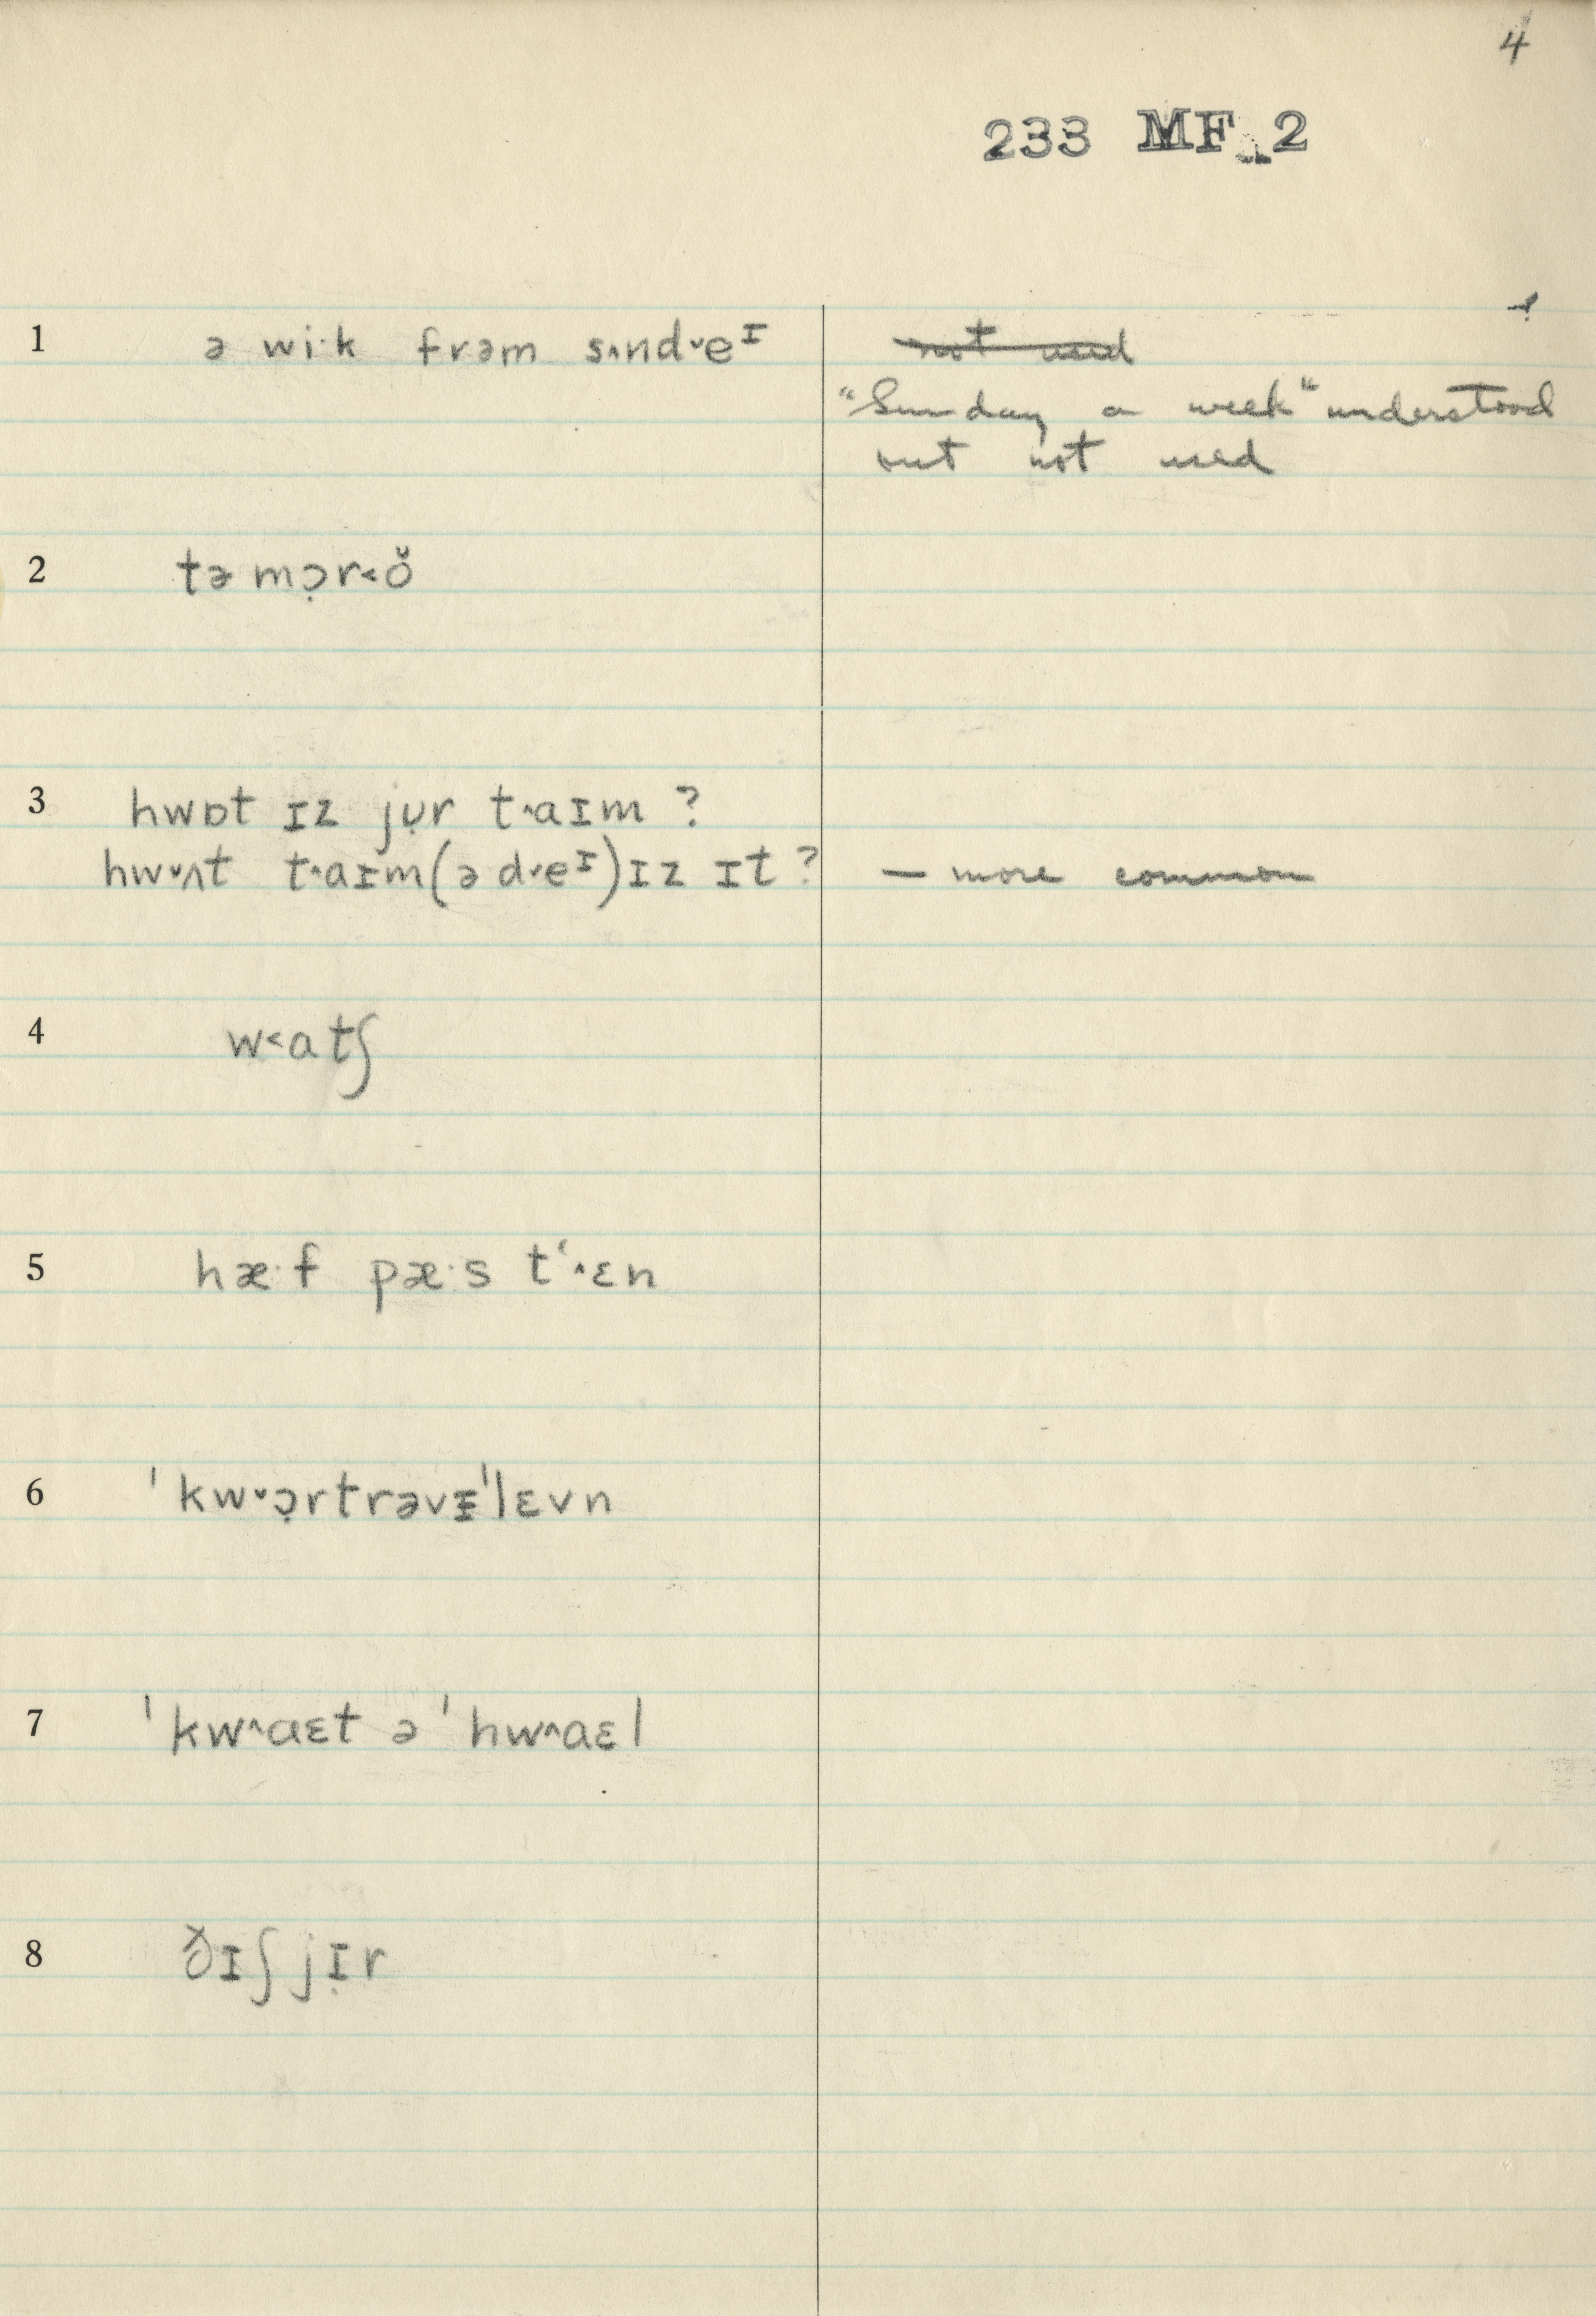 4
233 MF 2
1 ə wi·k frəm sʌnd˅eᶦ not used
"Sunday a week" understood
but not used
2 tə mɔ̣r˂ŏ
3 hwɒt ɪz jụr t˄aɪm ?
hw˅ʌt t˄aɪm(ə d˅eᶦ)ɪz ɪt ? — more common
4 w˂atʃ
5 hæ·f pæ·s tʻ˄ɛn
6 ˈkw˅ɔ̣rtrəvɪˈlɛvn
7 ˈkw˄aɛt ə ˈhw˄aɛl
8 ðɪʃ jɪ̣r